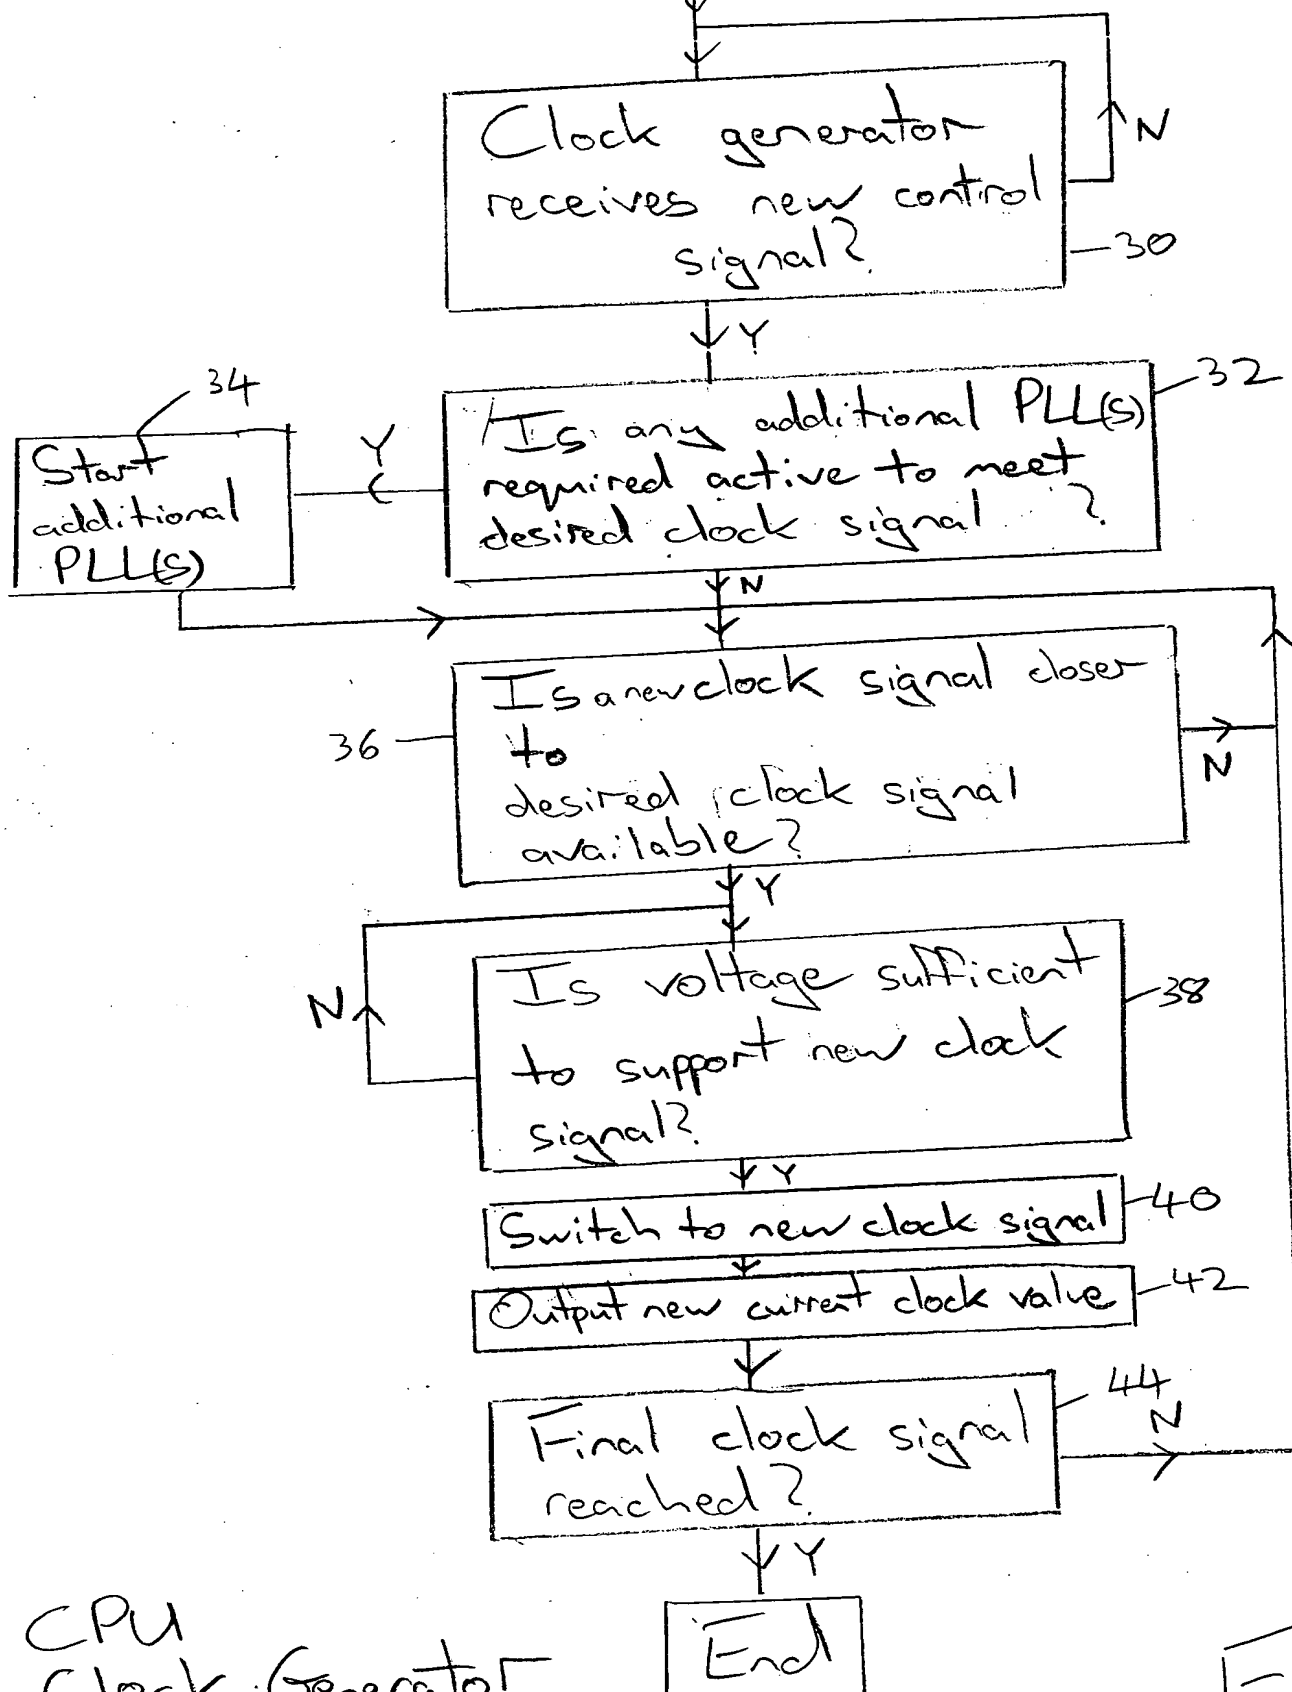 Clock generator
N
receives new control
signal?
30
Y
34
32
Is any additional PLL(s)
Y
Start
required active to meet
additional
desired clock signal ?
PLL(s)
N
Is a new clock signal closer
36
to
N
desired clock signal
available?
Y
Is voltage sufficient
38
N
to support new clock
signal?
Y
Switch to new clock signal
40
Output new current clock value
42
Final clock signal
44
N
reached?
Y
CPU
End
Clock Generator